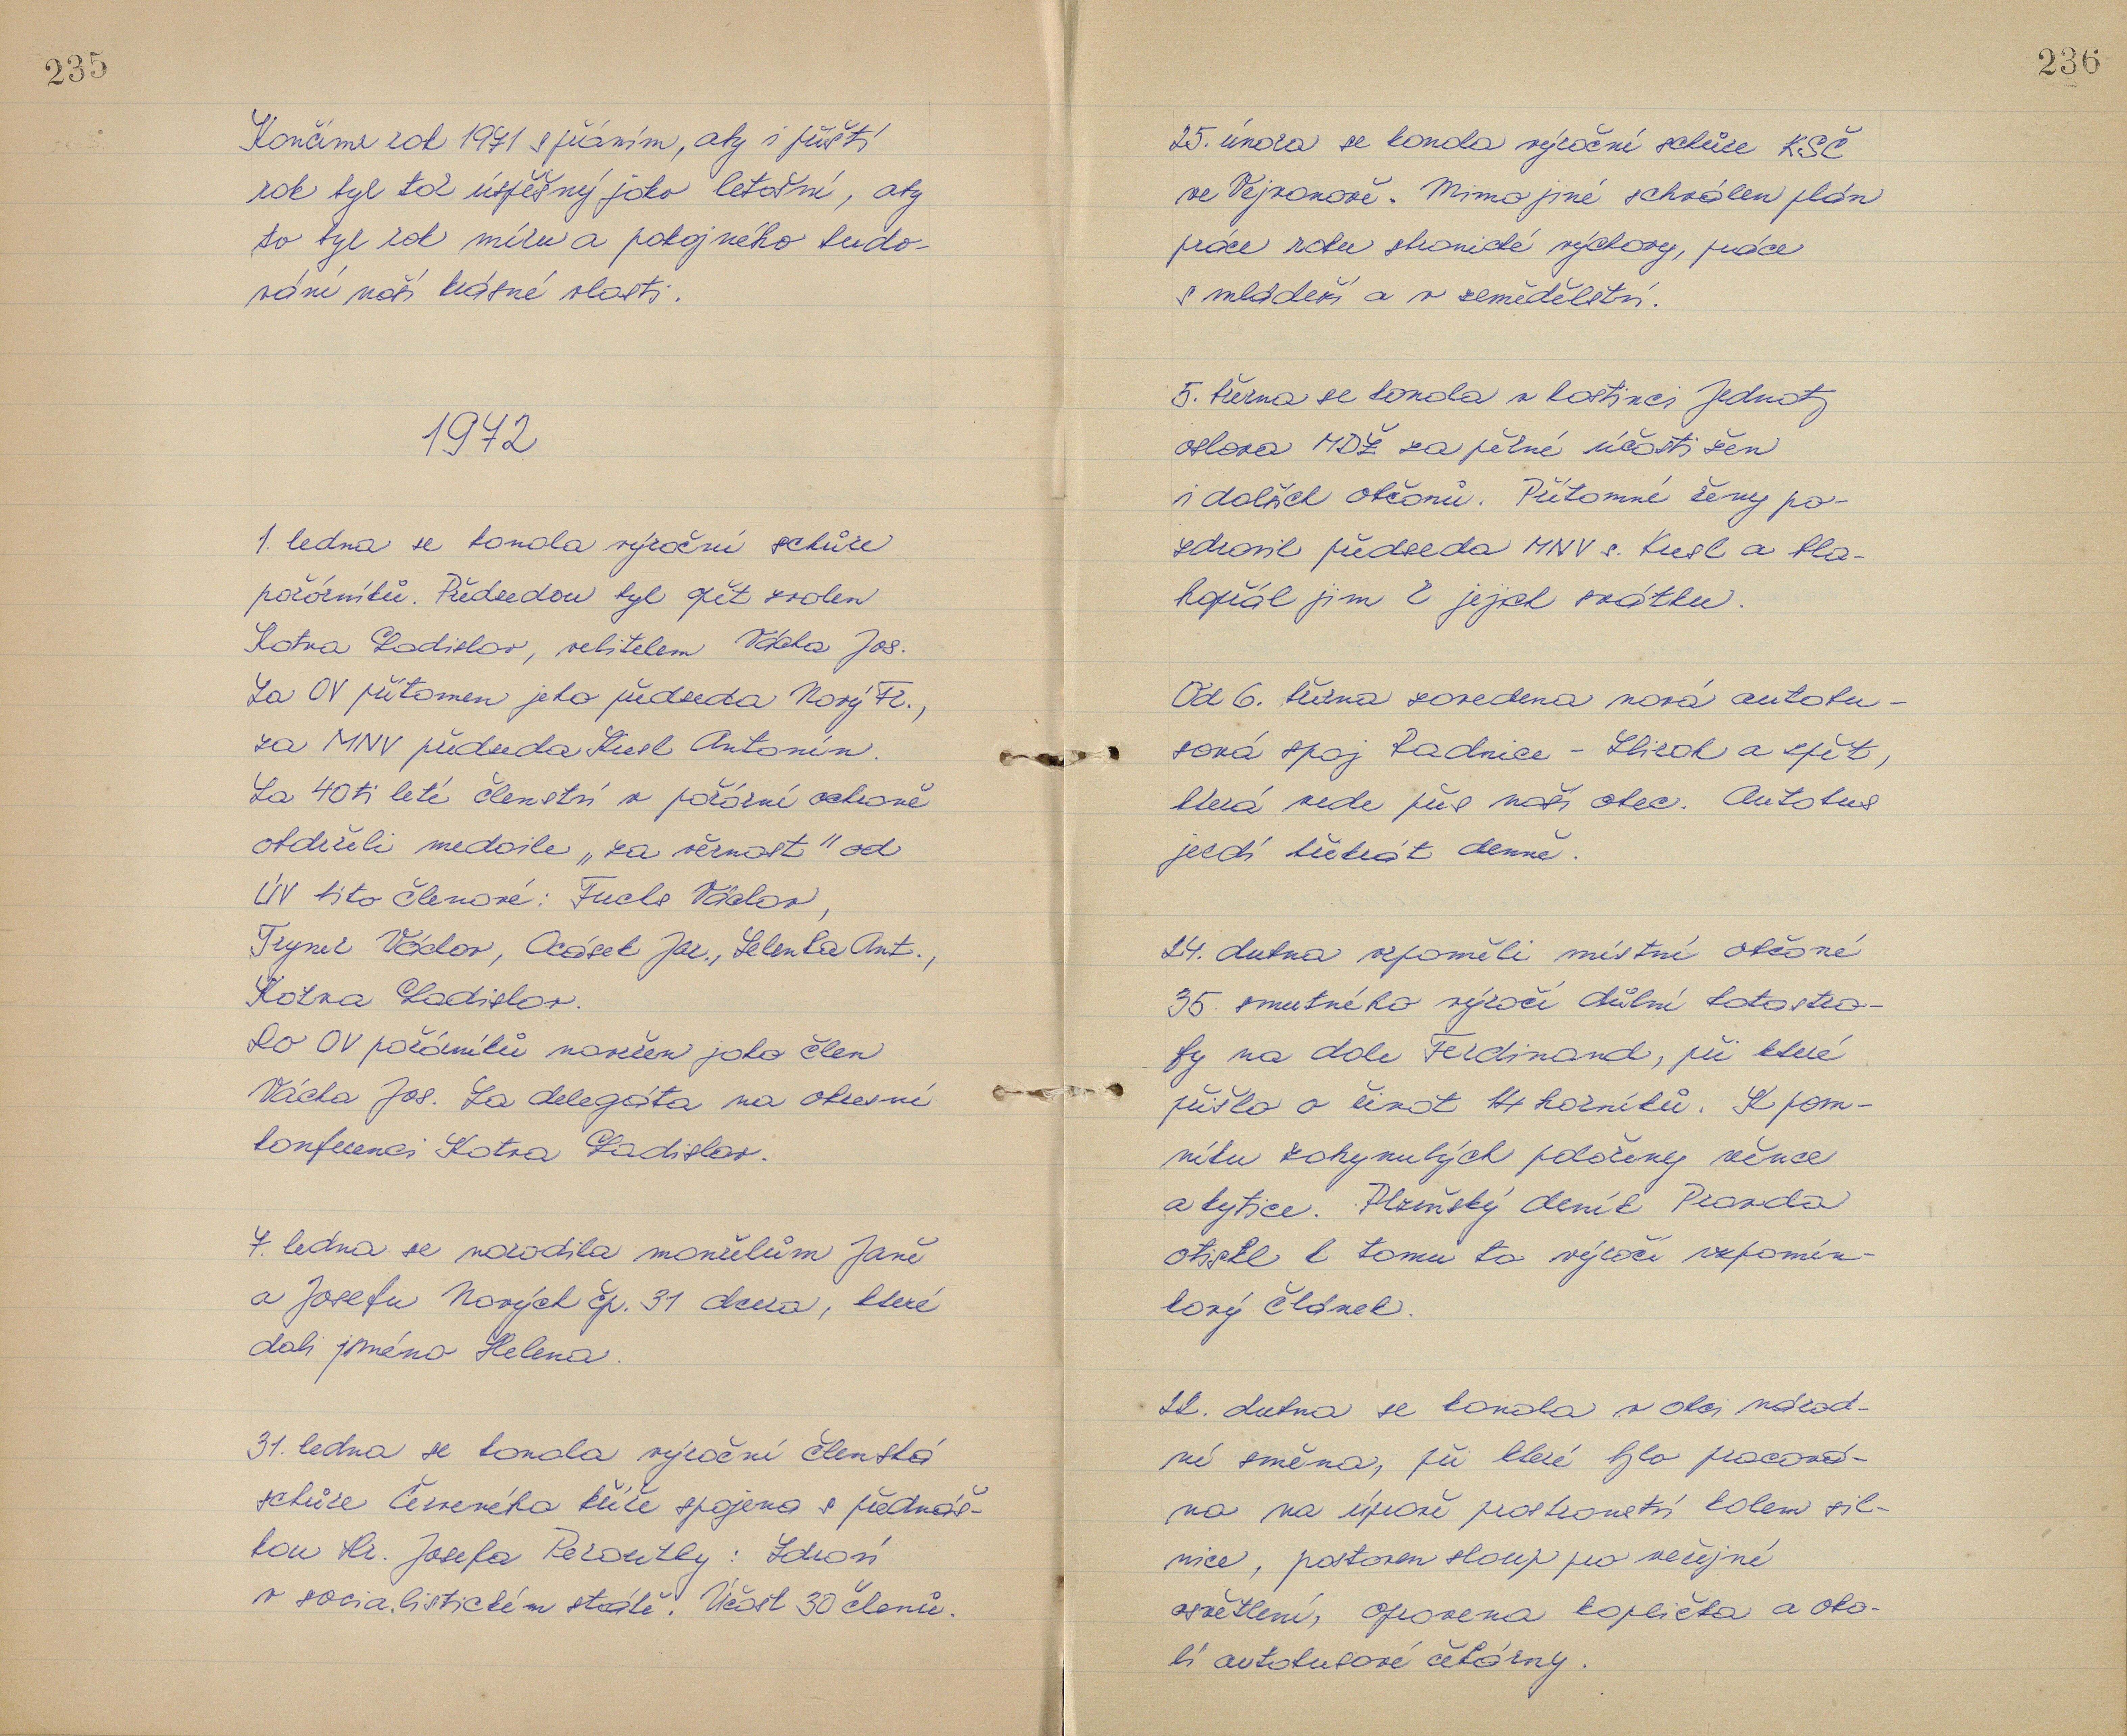 235
Končíme rok 1971 s přáním, aby i příští
rok byl tak úspěšný jako letošní, aby
to byl rok míru a pokojného budo-
vání naší krásné vlasti.
1972
1. ledna se konala výroční schůze
požárníků. Předsedou byl opět zvolen
Kotva Ladislav, velitelem Vácha Jos.
Za OV přítomen jeho předseda Nový Fr.,
za MNV předseda Kusl Antonín.
Za 40ti leté členství v požární ochraně
obdrželi medaile „za věrnost" od
ÚV tito členové: Fuchs Václav,
Trymr Václav, Ocásek Jar., Zelenka Ant.,
Kotva Ladislav.
Do OV požárníků navržen jako člen
Vácha Jos. Za delegáta na okresní
konferenci Kotva Ladislav.
7. ledna se narodila manželům Janě
a Josefu Nových čp. 31 dcera, které
dali jméno Helena.
31. ledna se konala výroční členská
schůze Červeného kříže spojena s přednáš-
kou Dr. Josefa Peroutky: Zdraví
v socialistickém státě. Účast 30 členů.
236
25. února se konala výroční schůze KSČ
ve Vejvanově. Mimo jiné schválen plán
práce roku stranické výchovy, práce
s mládeží a v zemědělství.
5. března se konala v hostinci Jednoty
oslava MDŽ za pěkné účasti žen
i dalších občanů. Přítomné ženy po-
zdravil předseda MNV s. Kusl a bla-
hopřál jim k jejich svátku.
Od 6. března zavedena nová autobu-
sová spoj Radnice - Zbiroh a zpět,
která vede přes naši obec. Autobus
jezdí třikrát denně.
24. dubna vzpoměli místní občané
35. smutného výročí důlní katastro-
fy na dole Ferdinand, při které
přišlo o život 14 horníků. K pom-
níku zahynulých položeny věnce
a kytice. Plzeňský deník Pravda
otiskl k tomu to výročí vzpomín-
kový článek.
22. dubna se konala v obci národ-
ní směna, při které bylo pracová-
no na úpravě prostranství kolem sil-
nice, postaven sloup pro veřejné
osvětlení, opravena kaplička a oko-
lí autobusové čekárny.